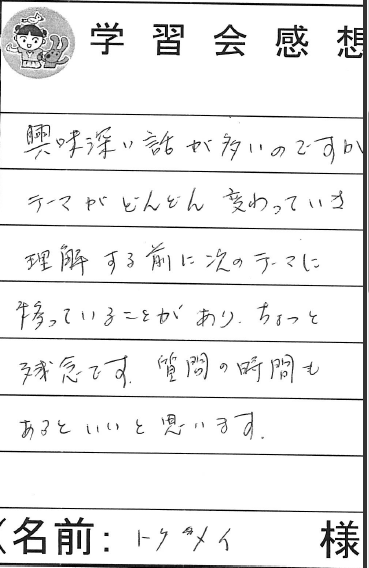 学習会感想
興味深い話が多いのですが
テーマがどんどん変わっていき
理解する前に次のテーマに
移っていることがあり、ちょっと
残念です。質問の時間も
あるといいと思います。
名前：トクメイ 様